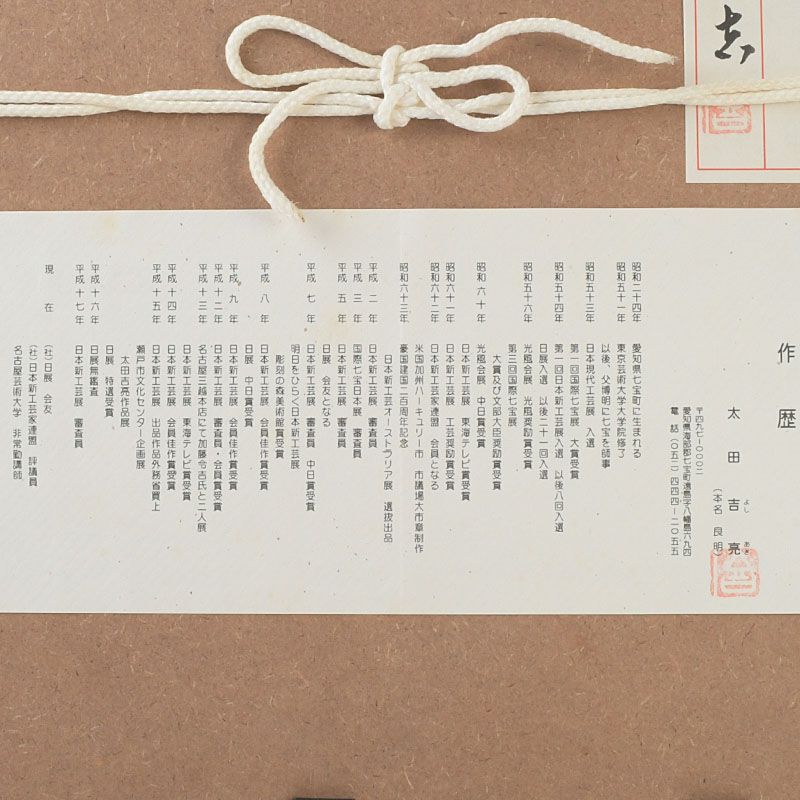 作歴
太田吉亮
よし あき
(本名 良明)
〒四九七-〇〇〇二
愛知県海部郡七宝町遠島字八幡島六九四
電話(〇五二)四四四-二〇五五
昭和二十四年 愛知県七宝町に生まれる
昭和五十一年 東京芸術大学大学院修了
以後、父博明に七宝を師事
昭和五十三年 日本現代工芸展 入選
第一回国際七宝展 大賞受賞
昭和五十四年 第一回日本新工芸展入選 以後八回入選
日展入選 以後二十一回入選
昭和五十六年 光風会展 光風奨励賞受賞
第三回国際七宝展
大賞及び文部大臣奨励賞受賞
昭和六十年 光風会展 中日賞受賞
日本新工芸展 東海テレビ賞受賞
昭和六十一年 日本新工芸展 工芸奨励賞受賞
昭和六十二年 日本新工芸家連盟 会員となる
米国加州ハーキュリー市 市議場大市章制作
昭和六十三年 豪国建国二百周年記念
日本新工芸オーストラリア展 選抜出品
平成二年 日本新工芸展 審査員
平成三年 国際七宝日本展 審査員
平成五年 日本新工芸展 審査員
日展 会友となる
平成七年 日本新工芸展 審査員 中日賞受賞
明日をひらく日本新工芸展
彫刻の森美術館賞受賞
平成八年 日本新工芸展 会員佳作賞受賞
日展 中日賞受賞
平成九年 日本新工芸展 会員佳作賞受賞
平成十二年 日本新工芸展 審査員・会員賞受賞
平成十三年 名古屋三越本店にて加藤令吉氏と二人展
日本新工芸展 東海テレビ賞受賞
平成十四年 日本新工芸展 会員佳作賞受賞
平成十五年 日本新工芸展 出品作品外務省買上
瀬戸市文化センター企画展
太田吉亮作品展
日展 特選受賞
平成十六年 日展無鑑査
平成十七年 日本新工芸展 審査員
現在 (社)日展 会友
(社)日本新工芸家連盟 評議員
名古屋芸術大学 非常勤講師